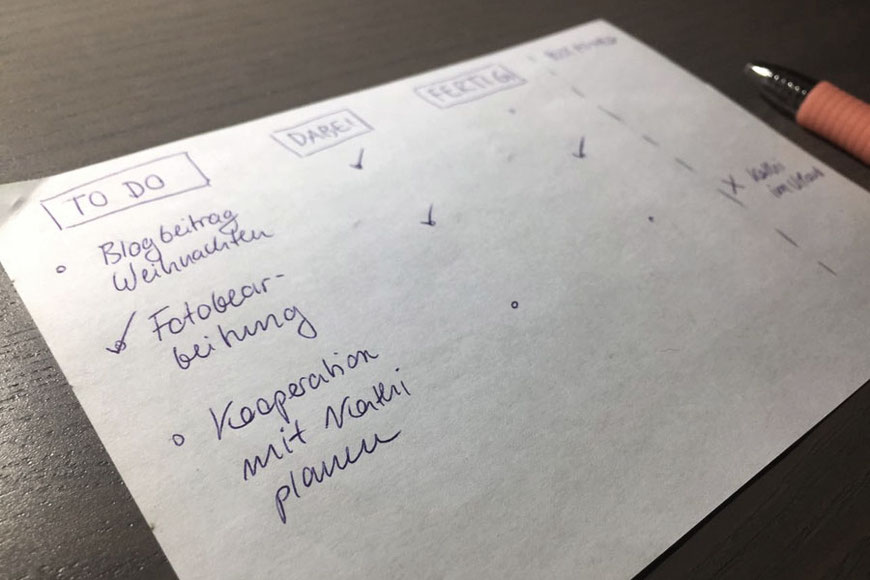 TO DO
DABEI
FERTIG
Blogbeitrag
Weihnachten
Fotobear-
beitung
Kooperation
mit Kathi
planen
x Kathi
im Urlaub